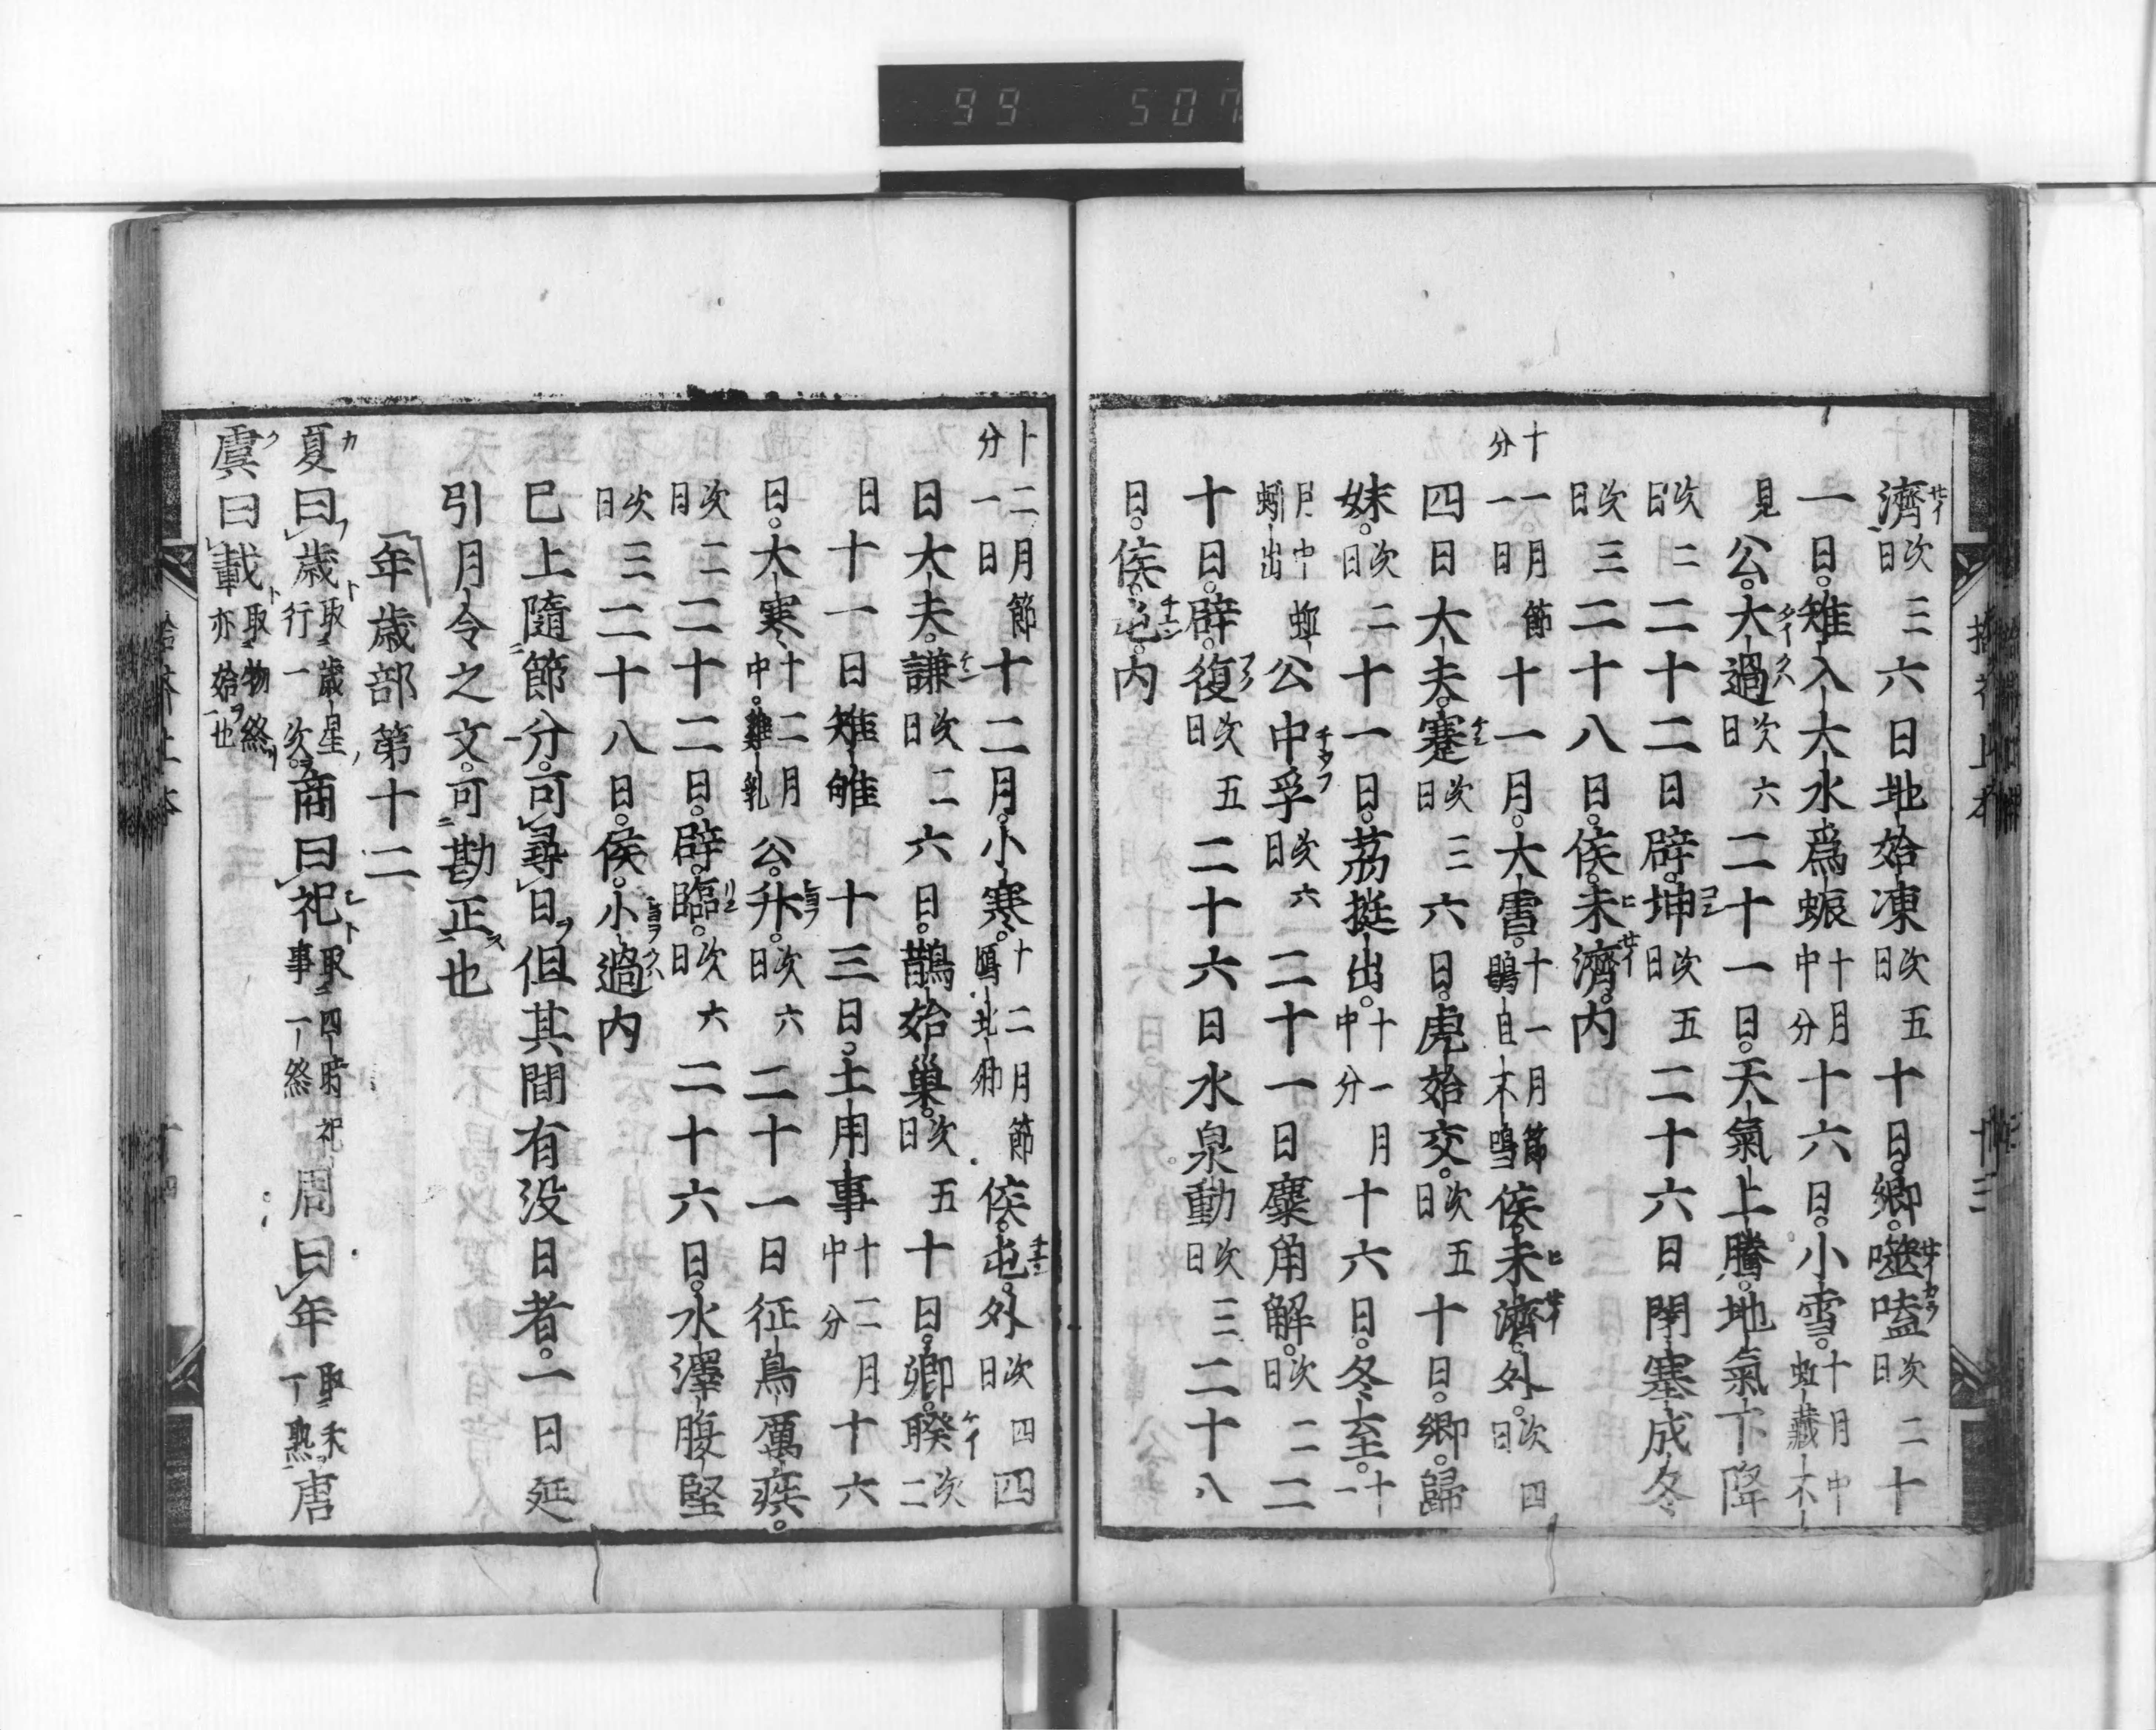 濟次三日六日地始凍次五日十日。卿。噬嗑次日二十
一日。雉入大水爲蜄十月中分十六日。小雪。十月中虹藏不
見公。大過次六日二十一日。天氣上騰。地氣下降
次二日二十二日辟。坤次五日二十六日閉塞成冬
次三日二十八日。侯。未濟。内
十一月節分一日十一月。大雪。十一月節鶡自不鳴侯。未濟。外。次四日
四日大夫。蹇次三日六日。虎始交。次五日十日。卿。歸
妹。次二日十一日。荔挺出。十一月中分十六日。冬至。十一
月中蚯蚓出公中孚次六日二十一日麋角解。次二日二
十日。辟。復次五日二十六日水泉動次三日二十八
日。侯。屯。内
十二月節分一日十二月。小寒。十二月節鴈北郷侯。屯。外次四日四
日大夫。謙次二日六日。鵲始巢。次五日十日。卿。睽次二
日十一日雉雊十三日。土用事十二月中分十六
日。大寒十二月中。雞乳公。升。次六日二十一日征鳥厲疾。
次二日二十二日。辟。臨。次六日二十六日。水澤腹堅
次三日二十八日。侯。小過内
已上隨節分。可尋日。但其間有没日者。一日延
引月令之文。可勘正也
年歳部第十二
夏曰歳取歳星行一次。商曰祀取四時祀事一終周曰年取禾一熟唐
虞曰載取物終亦始也